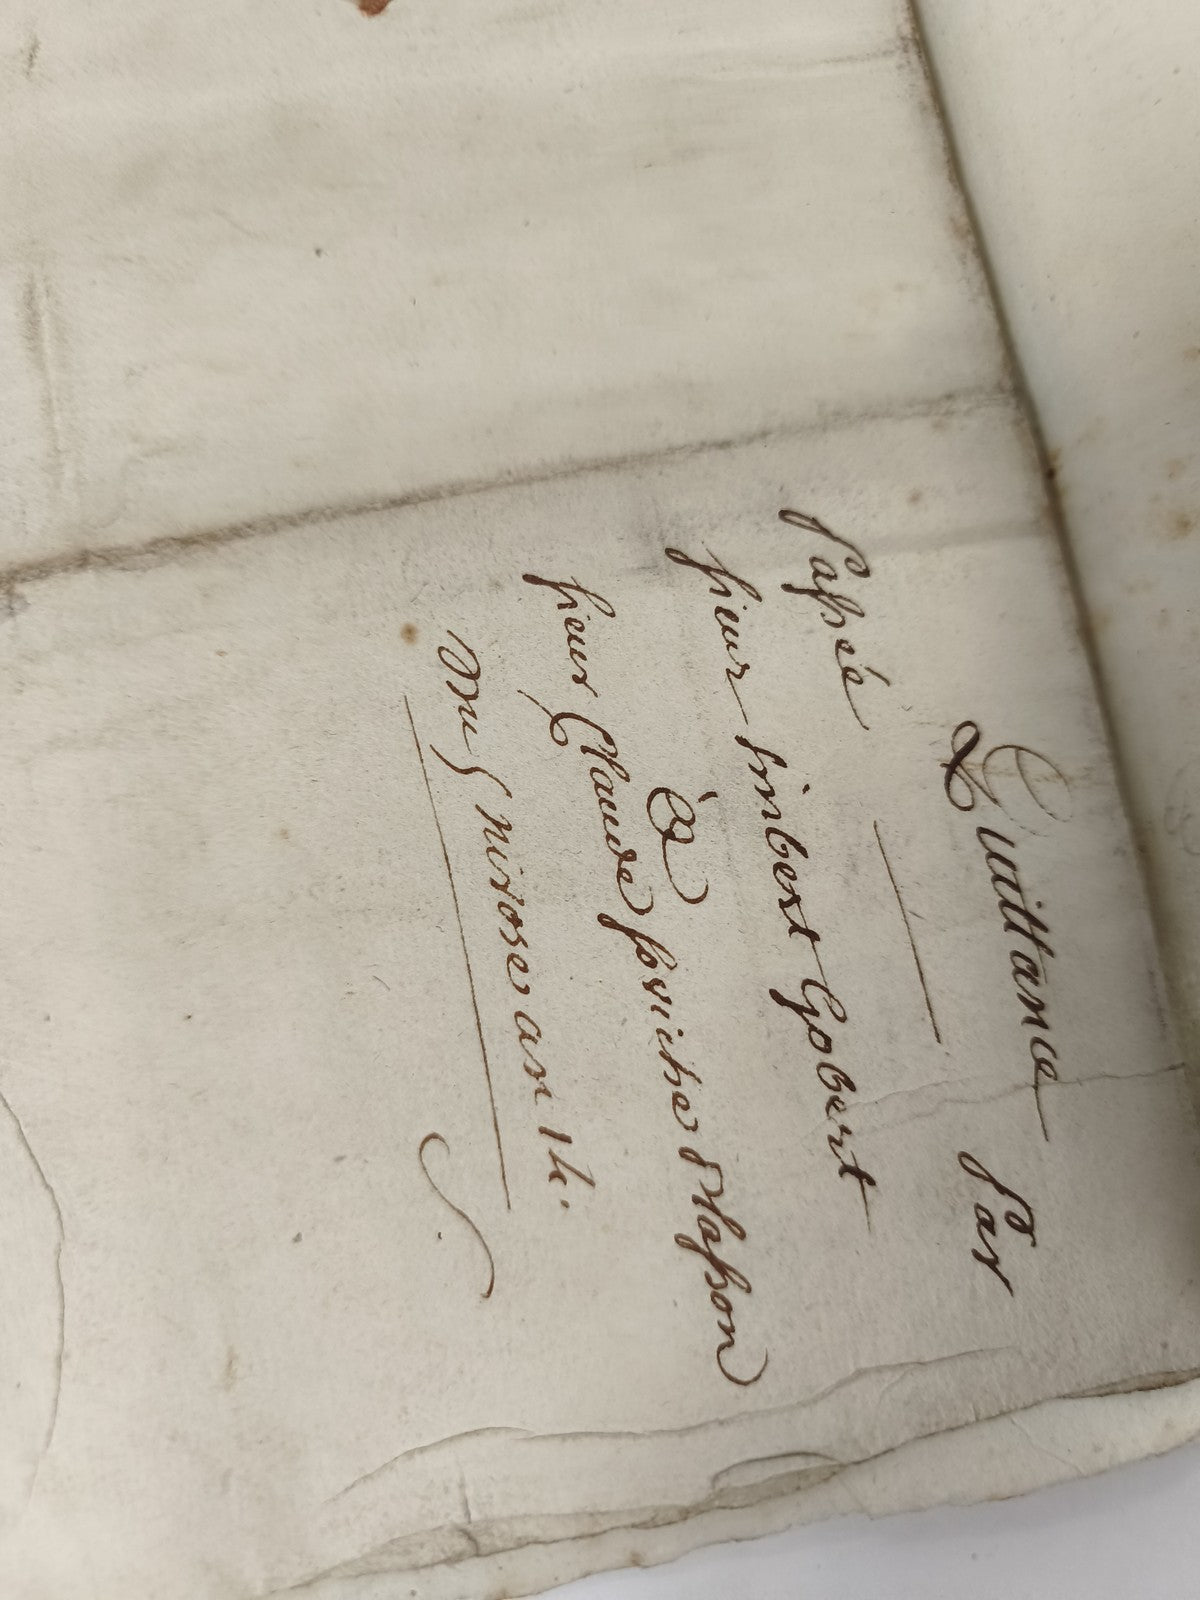 Quittance Par
Passée
sieur imbert Gobert
à
sieur Claude joseph Masson
Du 5 nivose an 14.